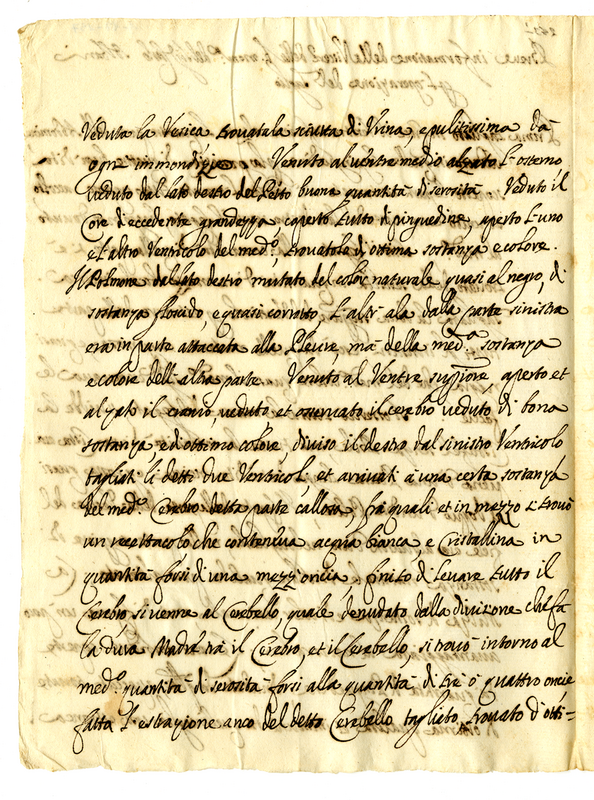 Veduta la Vesica trovatala asciutta di Urina, e pulitissima da
ogni immondizie. Venuto al ventre medio alzato l'osterno
veduto dal lato destro del Petto buona quantità di serosità. Veduto il
Core d'eccedente grandezza, coperto tutto di pinguedine, aperto l'uno
e l'altro Ventricolo del med.º, trovatolo di ottima sostanza e colore.
Il Polmone dal lato destro mutato del color naturale quasi al negro, di
sostanza flosido, e quasi corrotto, l'altr'ala dalla parte sinistra
era in parte attaccata alla Pleura, ma della med.ma sostanza
e colore dell'altra parte. Venuto al Ventre superiore, aperto et
alzato il cranio, veduto et osservato il cerebro veduto di bona
sostanza, ed ottimo colore, diviso il destro dal sinistro Ventricolo
tagliati li detti due Ventricoli, et arrivati à una certa sostanza
del med.º Cerebro detta parte callosa, frà quali et in mezzo si trovò
un recettacolo che conteneva acqua bianca, e Cristallina in
quantità forsi di una mezz'oncia, finito di levare tutto il
Cerebro, si venne al Cerebello, quale denudato dalla divisione che fa
la dura Madre trà il Cerebro, et il Cerebello, si trovò intorno al
med.º quantità di serosità forsi alla quantità di trè ò quattro oncie
fatta l'estrazione anco del detto Cerebello tagliato, trovato d'otti=